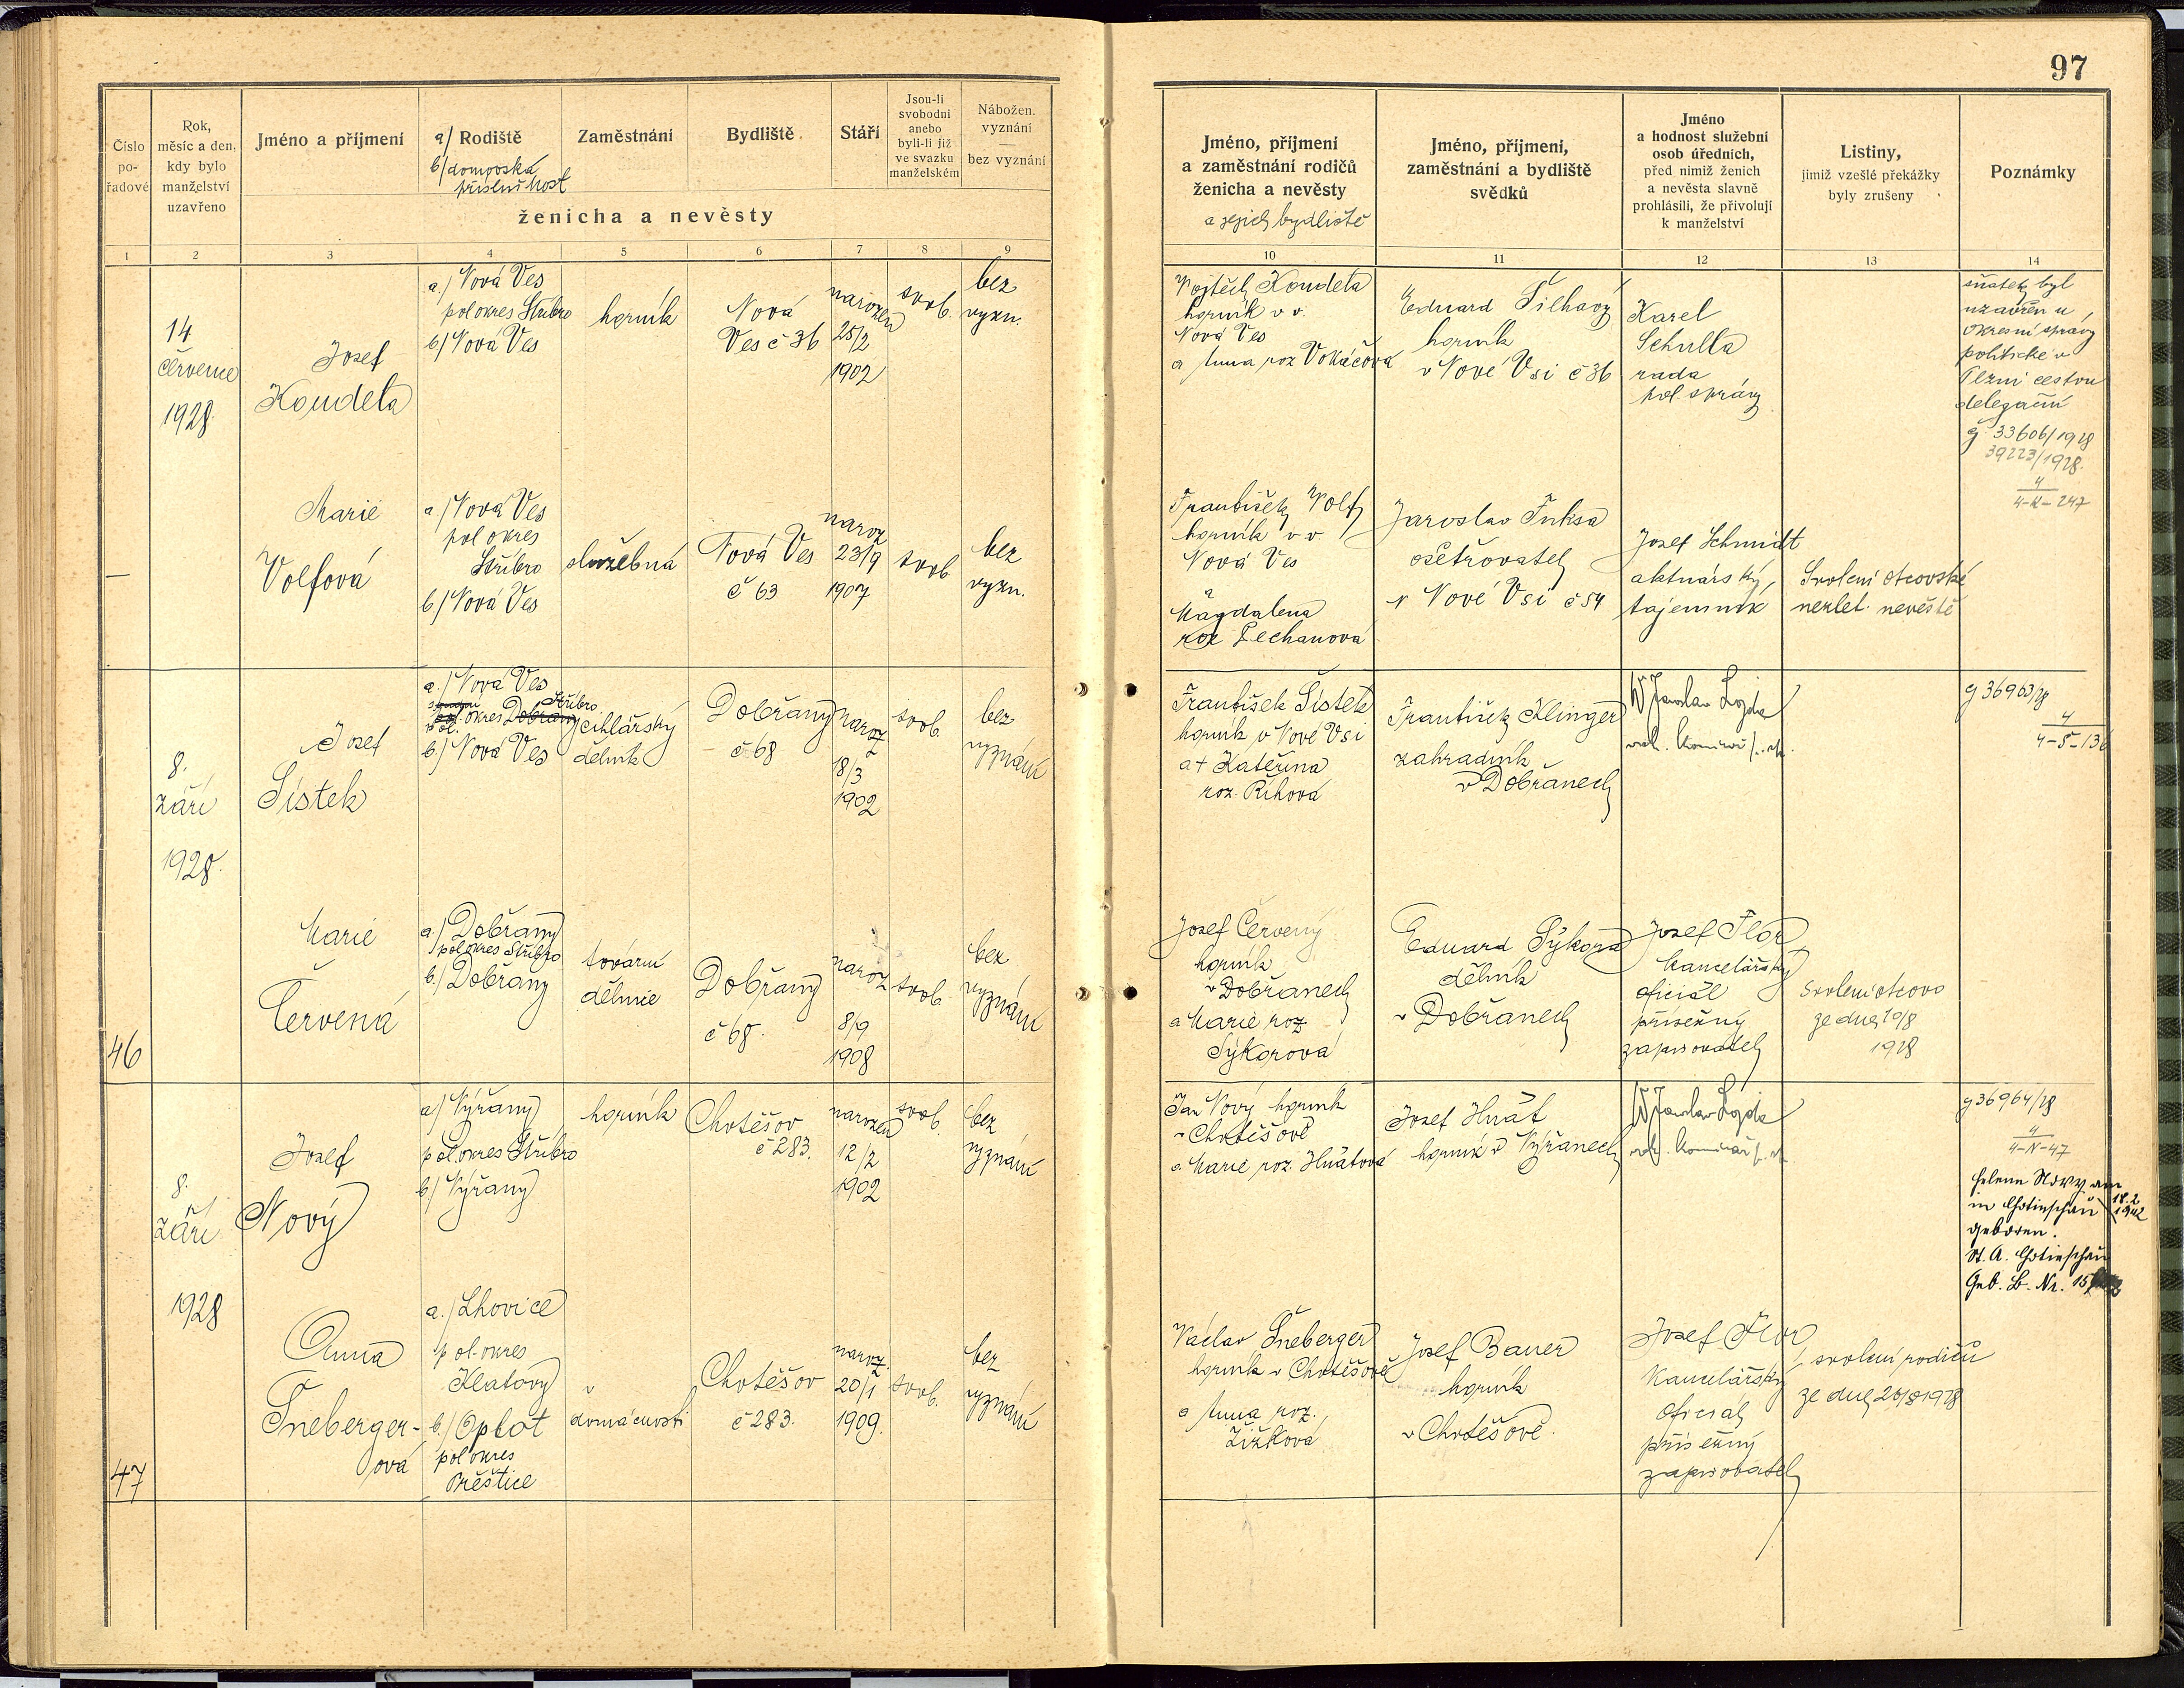 97
Číslo pořadové
Rok, měsíc a den, kdy bylo manželství uzavřeno
Jméno a příjmení
a/ Rodiště
b/ domovská příslušnost
Zaměstnání
Bydliště
Stáří
Jsou-li svobodni anebo byli-li již ve svazku manželském
Nábožen. vyznání — bez vyznání
ženicha a nevěsty
Jméno, příjmení a zaměstnání rodičů ženicha a nevěsty
a jejich bydliště
Jméno, příjmení, zaměstnání a bydliště svědků
Jméno a hodnost služební osob úředních, před nimiž ženich a nevěsta slavně prohlásili, že přivolují k manželství
Listiny, jimiž vzešlé překážky byly zrušeny
Poznámky
1 2 3 4 5 6 7 8 9 10 11 12 13 14
14
července
1928.
Josef
Koudela
a.) Nová Ves
pol okres Stříbro
b) Nová Ves
horník
Nová
Ves č 36
narozen
25/2
1902
svob.
bez
vyzn.
Vojtěch Koudela
horník v v.
Nová Ves
a Anna roz Vokáčová
Eduard Šilhavý
horník
v Nové Vsi č 36
Karel
Schulla
rada
pol. správy
sňatek byl
uzavřen u
okresní správy
politické v
Plzni cestou
delegační
čj 33606/1928
39223/1928.
4
4-K-247
—
Marie
Volfová
a.) Nová Ves
pol okres
Stříbro
b.) Nová Ves
služebná
Nová Ves
č 63
naroz
23/9
1907
svob
bez
vyzn.
František Volf
horník v v.
Nová Ves
a
Magdalena
roz Pechanová
Jaroslav Fuksa
ošetřovatel
v Nové Vsi č 54
Josef Schmidt
aktuárský
tajemník
Svolení otcovské
nezlet. nevěstě
46
8.
září
1928.
Josef
Šístek
a.) Nová Ves
okres Dobřany Stříbro
pol.
b.) Nová Ves
cihlářský
dělník
Dobřany
č 68
naroz
18/3
1902
svob.
bez
vyznání
František Šístek
horník v Nové Vsi
a † Kateřina
roz. Říhová
František Klinger
zahradník
v Dobřanech
Jaroslav Lojda
čj 36963/28
4
4-Š-136
Marie
Červená
a.) Dobřany
pol okres Stříbro
b.) Dobřany
tovární
dělnice
Dobřany
č 68.
naroz
8/9
1908
svob.
bez
vyznání
Josef Červený
horník
v Dobřanech
a Marie roz
Sýkorová
Eduard Sýkora
dělník
v Dobřanech
Josef Flor
kancelářský
oficiál
přísežný
zapisovatel
Svolení otcovo
ze dne 10/8
1928
47
8.
září
1928
Josef
Nový
a) Výřany
pol. okres Stříbro
b) Výřany
horník
Chotěšov
č 283.
narozen
12/2
1902
svob.
bez
vyznání
Jan Nový horník
v Chotěšově
a Marie roz. Hnátová
Josef Hnát
horník v Výřanech
Jaroslav Lojda
čj 36964/28
4
4-N-47
Helene Nowy am 18.2. 1942
in Chotieschau
geboren.
St. A. Chotieschau
Geb. B. Nr. 15
Anna
Šnebergerová
a.) Lhovice
pol okres
Klatovy
b.) Oplot
pol okres
Přeštice
v
domácnosti
Chotěšov
č 283.
naroz.
20/1
1909.
svob.
bez
vyznání
Václav Šneberger
horník v Chotěšově
a Anna roz.
Žižková
Josef Bauer
horník
v Chotěšově.
Josef Flor
kancelářský
oficiál
přísežný
zapisovatel
svolení rodičů
ze dne 20/8 1928